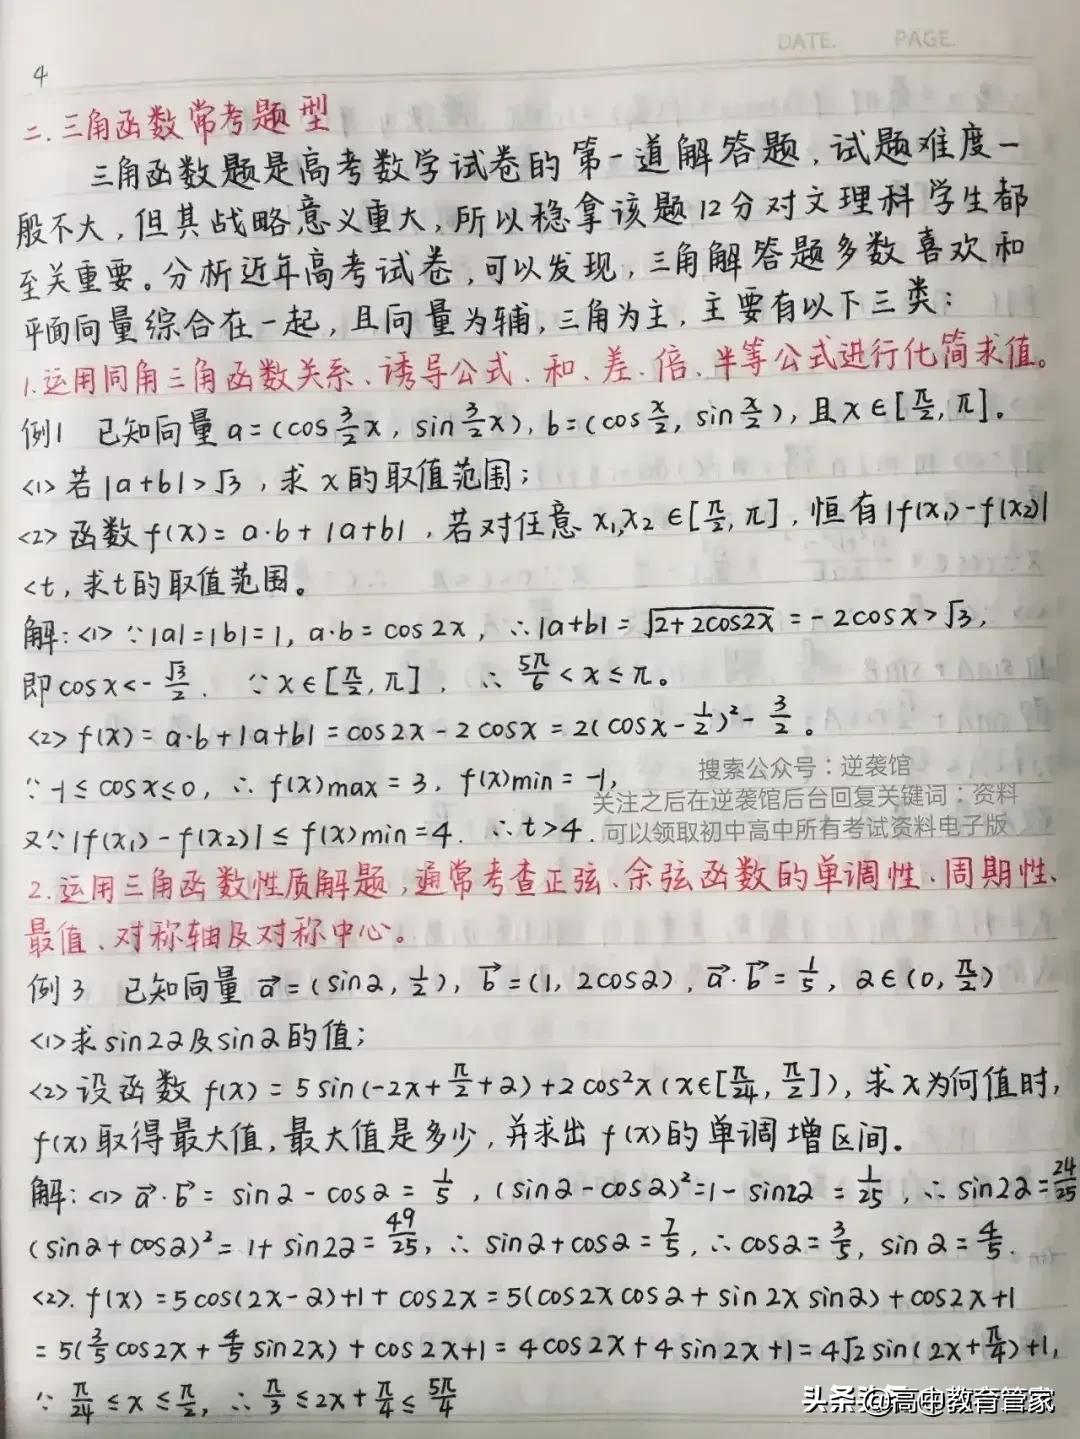 DATE. PAGE.
4
二.三角函数常考题型
三角函数题是高考数学试卷的第一道解答题,试题难度一
般不大,但其战略意义重大,所以稳拿该题12分对文理科学生都
至关重要。分析近年高考试卷,可以发现,三角解答题多数喜欢和
平面向量综合在一起,且向量为辅,三角为主,主要有以下三类:
1.运用同角三角函数关系、诱导公式、和、差、倍、半等公式进行化简求值。
例1 已知向量a=(cos 3/2 x, sin 3/2 x), b=(cos x/2, sin x/2), 且x∈[π/2, π]。
<1>若|a+b|>√3, 求x的取值范围;
<2>函数f(x)=a·b+|a+b|, 若对任意x₁,x₂∈[π/2, π], 恒有|f(x₁)-f(x₂)|
<t, 求t的取值范围。
解:<1>∵|a|=|b|=1, a·b=cos2x, ∴|a+b|=√(2+2cos2x)=-2cosx>√3,
即cosx<-√3/2. ∵x∈[π/2, π], ∴5π/6<x≤π。
<2>f(x)=a·b+|a+b|=cos2x-2cosx=2(cosx-1/2)²-3/2。
∵-1≤cosx≤0, ∴f(x)max=3, f(x)min=-1,
又∵|f(x₁)-f(x₂)|≤f(x)min=4. ∴t>4.
搜索公众号:逆袭馆
关注之后在逆袭馆后台回复关键词:资料
可以领取初中高中所有考试资料电子版
2.运用三角函数性质解题,通常考查正弦、余弦函数的单调性、周期性、
最值、对称轴及对称中心。
例3 已知向量a⃗=(sin2, 1/2), b⃗=(1, 2cos2), a⃗·b⃗=1/5, 2∈(0, π/2)
<1>求sin22及sin2的值;
<2>设函数f(x)=5sin(-2x+π/2+2)+2cos²x(x∈[π/24, π/2]), 求x为何值时,
f(x)取得最大值,最大值是多少,并求出f(x)的单调增区间。
解:<1>a⃗·b⃗=sin2-cos2=1/5, (sin2-cos2)²=1-sin22=1/25, ∴sin22=24/25
(sin2+cos2)²=1+sin22=49/25, ∴sin2+cos2=7/5, ∴cos2=3/5, sin2=4/5.
<2>. f(x)=5cos(2x-2)+1+cos2x=5(cos2xcos2+sin2xsin2)+cos2x+1
=5(3/5cos2x+4/5sin2x)+cos2x+1=4cos2x+4sin2x+1=4√2sin(2x+π/4)+1,
∵π/24≤x≤π/2, ∴π/3≤2x+π/4≤5π/4
头条@高中教育管家